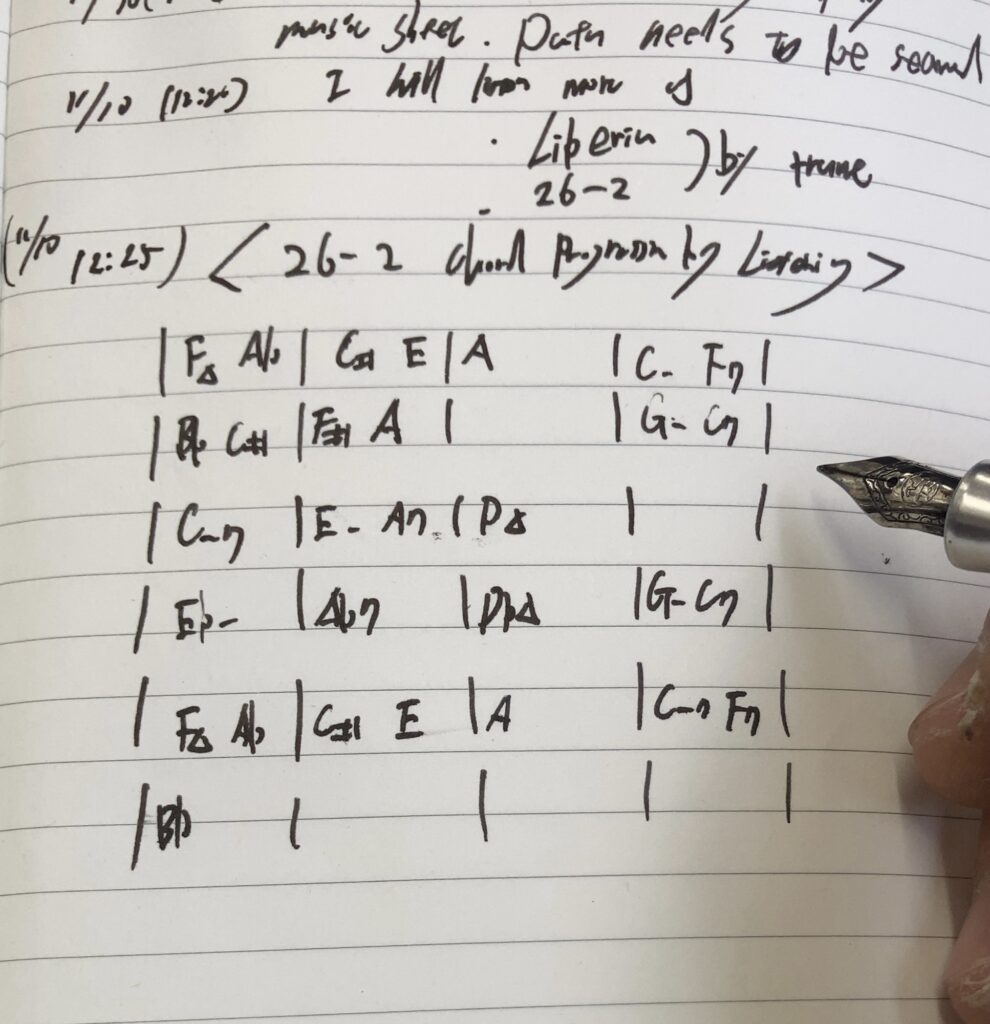 music sheet. Data needs to be
11/10 (12:20) I will learn more of
. Liberia
- 26-2 ) by trane
(11/10 12:25) < 26-2 chord progression by Listening >
| FΔ Ab | C# E | A | C- F7 |
| Bb C# | F# A | | G- C7 |
| C-7 | E- A7 | DΔ | |
| Eb- | Ab7 | DbΔ | G- C7 |
| FΔ Ab | C# E | A | C-7 F7 |
| Bb | | | |